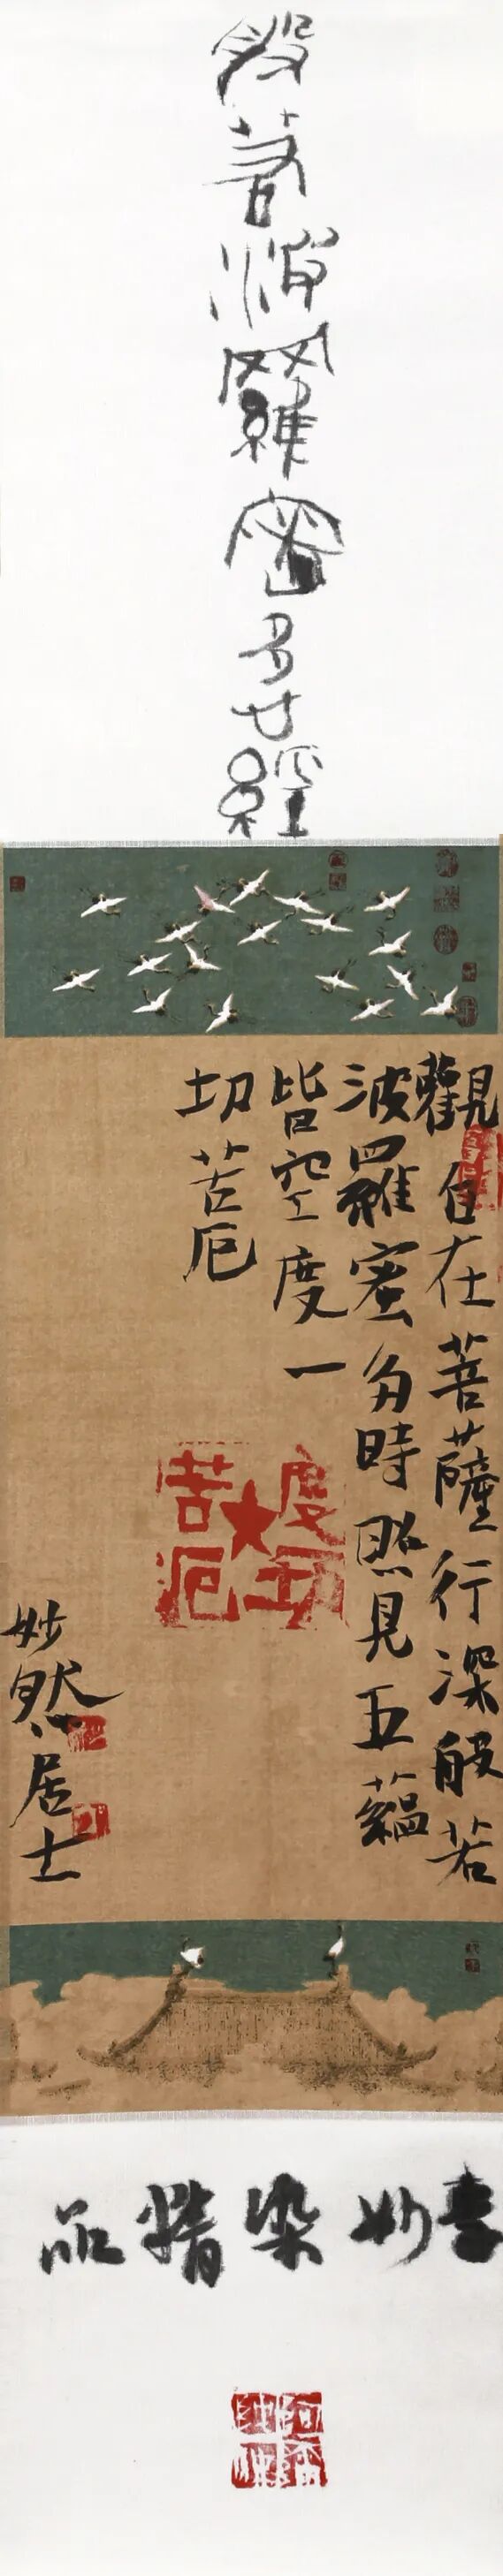 般若波羅蜜多心經
觀自在菩薩行深般若
波羅蜜多時照見五蘊
皆空度一
切苦厄
度切
苦厄
妙然居士
妙染精品
阿彌
陀佛